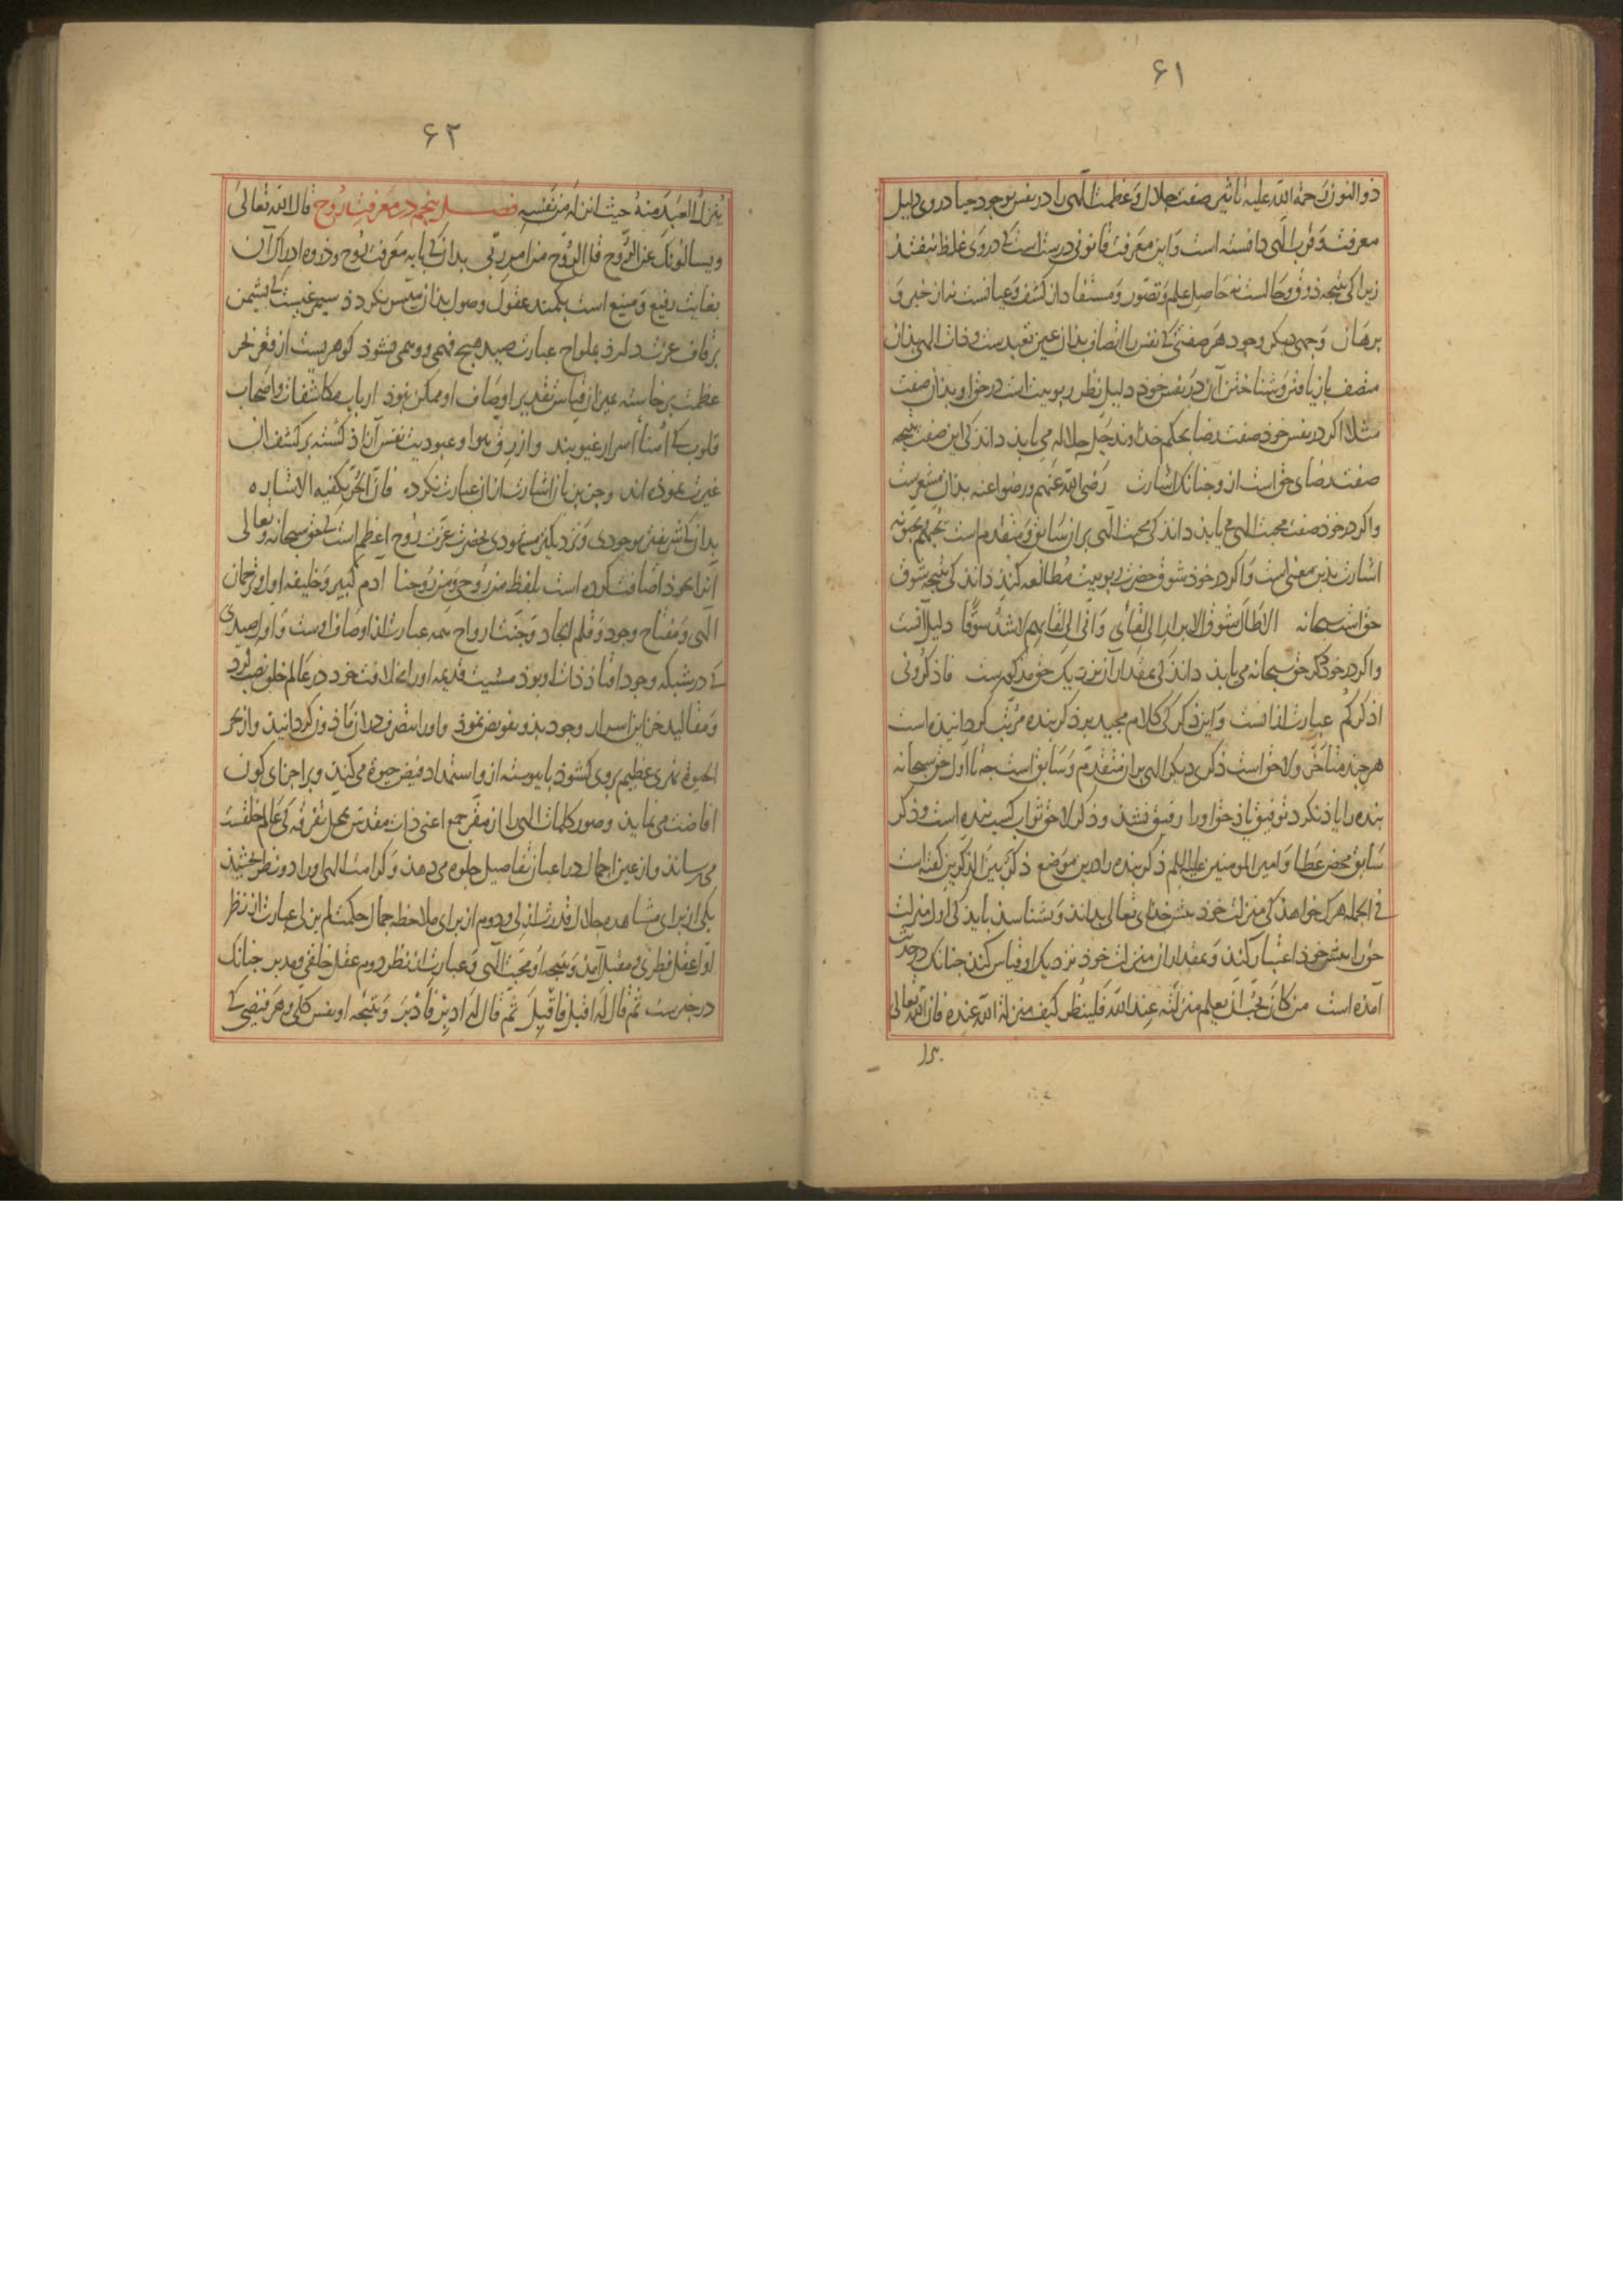 ۶۱
ذوالنون رحمة الله علیه تاثیر صفت جلال و عظمت الهی را در نفس بوجود حیا در وی دلیل
معرفت و قرب الهی دانسته است و این معرفت قانونی درست است کی در وی غلط نیفتد
زیرا کی نتیجه ذوق و حالست نه حاصل علم و تصور و مستفاد از کشف و عیانست نه از خبر و
برهان وجهی دیکر وجود هر صفتی کی نفس را اتصاف بدان عین تعبدست و ذات الهی بدان
متصف باز یافتن و شناختن آن در نفس خود دلیل نظر ربوبیت است در حق او بدان صفت
مثلا اکر در نفس خود صفت رضا بحکم خداوند جل جلاله می یابد داند کی این صفت نتیجه
صفت رضای حق است ازو چنانک اشارت رضی الله عنهم و رضوا عنه بدان مشعرست
و اکر در خود صفت محبت الهی می یابد داند کی محبت الهی بر آن سابق و متقدم است یحبهم و یحبونه
اشارت بدین معنی است و اکر در خود شوق حضرت ربوبیت مطالعه کند داند کی نتیجه شوق
حق است سبحانه الا طال شوق الابرار الی لقائی و انی الی لقایهم لاشد شوقا دلیل آنست
و اکر در خود ذکر حق سبحانه می یابد داند کی بمقدار آن نزدیک حق مذکورست فاذکرونی
اذکرکم عبارت از آنست و این ذکر کی کلام مجید بر ذکر بنده مرتب کردانیده است
هر چند متاخر و لاحق است ذکری دیکر الهی بر آن متقدم و سابق است چه تا اول حق سبحانه
بنده را یاد نکرد توفیق یاذ حق او را رفیق نشد و ذکر لاحق ثواب کسب بنده است و ذکر
سابق محض عطا و امیر المومنین علیه السلم ذکر بنده را درین موضع ذکر بین الذکرین کفته است
فی الجمله هر ک خواهد کی منزلت خود پیش خدای تعالی بداند و بشناسد باید کی اول منزلت
حق را پیش خود اعتبار کند و بمقدار آن منزلت خود نزدیک او قیاس کند چنانک در حدیث
آمده است من کان یحب ان یعلم منزلته عند الله فلینظر کیف منزلة الله عنده فان الله تعالی
۶۲
ینزل العبد منه حیث انزله من نفسه فصل پنجم در معرفت روح قال الله تعالی
ویسالونک عن الروح قل الروح من امر ربی بدان کی پایه معرفت روح و ذروه ادراک آن
بغایت رفیع و منیع است بکمند عقول وصول بدان میسر نکردد سیمرغیست کی نشیمن
بر قاف عزت دارد بملواح عبارت صید هیچ فهمی و وهمی نشود کوهریست از قعر بحر
عظمت برخاسته بمیزان قیاس تقدیر اوصاف او ممکن نبود ارباب مکاشفات و اصحاب
قلوب کی امناء اسرار غیوبند و از رق هوا و عبودیت نفس آزاد کشته بر کشف آن
غیرت نموده اند و جز بزبان اشارت از آن عبارت نکرده فان الحر یکفیه الاشاره
بدان کی شریفترین موجودی و نزدیکترین مشهودی بحضرت عزت روح اعظم است کی حق سبحانه و تعالی
آنرا بخود اضافت کرده است بلفظ من روحی و من روحنا آدم کبیر و خلیفه اول و ترجمان
الهی و مفتاح وجود و قلم ایجاد و جنت ارواح همه عبارت از اوصاف اوست و اول صیدی
کی در شبکه وجود افتاذ ذات او بوذ مشیت قدیمه او را بخلافت خود در عالم خلق نصب کرد
و مقالید خزاین اسرار وجود بدو تفویض نمود و او را بتصرف در آن ماذون کردانید و از بحر
الحیوة نهری عظیم بر وی کشود تا پیوسته ازو استمداد فیض حیوة می کند و بر اجزای کون
افاضت می نماید و صور کلمات الهی را از مقر جمع اعنی ذات مقدس بمحل تفرقه کی عالم خلقست
می رساند و از عین اجمال در اعیان تفاصیل جلوه می دهد و کرامت الهی او را دو نظر بخشید
یکی از برای مشاهده جلال قدرت ازلی و دوم از برای ملاحظه جمال حکمت لم یزلی عبارت از نظر
اول عقل فطری و مقبل آمد و نتیجه او محبت الهی و عبارت از نظر دوم عقل خلقی و مدبر چنانک
در خبرست ثم قال له اقبل فاقبل ثم قال له ادبر فادبر و نتیجه او نفس کلی و هر فیضی کی